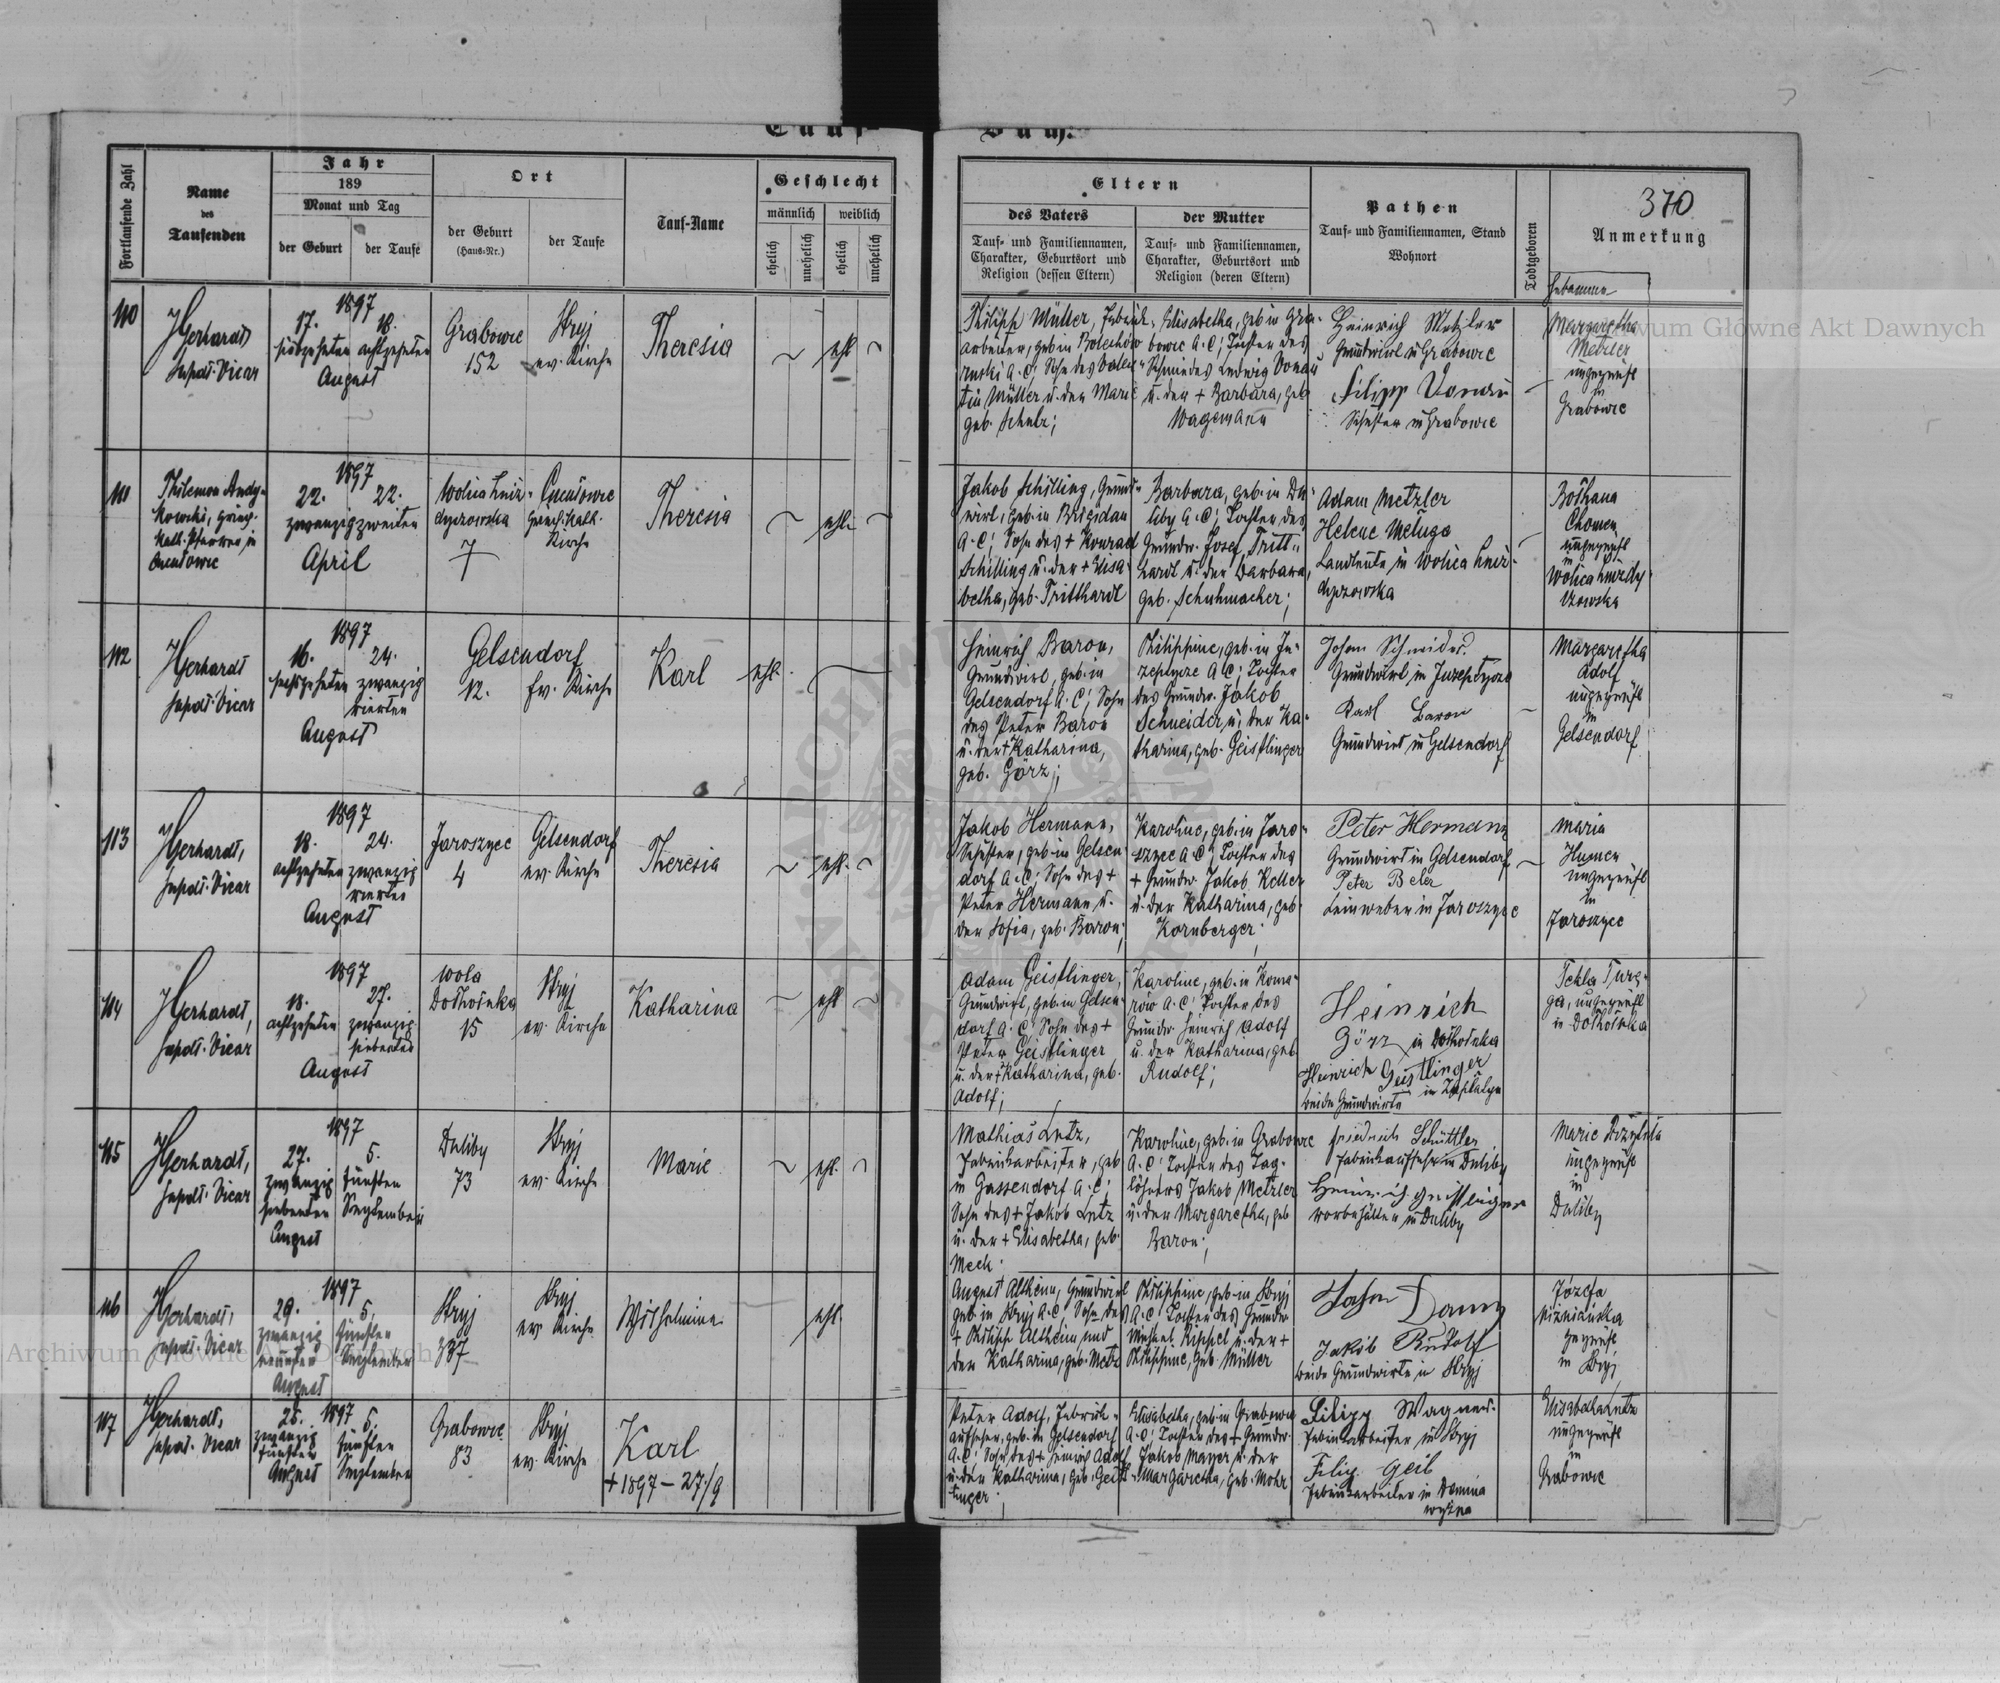 Tauf-Buch.
370
Fortlaufende Zahl
Name
des
Taufenden
Jahr
189
Monat und Tag
der Geburt
der Taufe
Ort
der Geburt
(Haus-Nr.)
der Taufe
Tauf-Name
Geschlecht
männlich
weiblich
ehelich
unehelich
ehelich
unehelich
Eltern
des Vaters
Tauf- und Familiennamen,
Charakter, Geburtsort und
Religion (dessen Eltern)
der Mutter
Tauf- und Familiennamen,
Charakter, Geburtsort und
Religion (deren Eltern)
Pathen
Tauf- und Familiennamen, Stand
Wohnort
Todtgeboren
Anmerkung
Hebamme
110
JGerhardt
Supdt. Vicar
1897
17. 18.
siebzehnten achtzehnten
August
Grabowce
152
Stryj
ev. Kirche
Theresia
ehl
Philipp Müller, Fabrik-
arbeiter, geb. in Bolechów
ruski A.C; Sohn des Valen-
tin Müller u. der Marie
geb. Schulz;
Elisabetha, geb in Gra-
bowce A.C; Tochter des
Schmiedes Ludwig Donau
u. der + Barbara, geb
Wagemann
Heinrich Metzler
Grundwirt in Grabowce
Filipp Donau
Schuster in Grabowce
Margaretha
Metzler
ungeprüft
in
Grabowce
111
Philemon
kowski, griech.
kath. Pfarrer in
1897
22. 22.
zwanzig zweiten
April
Wolica Hniz-
dyczowska
7
Griech. kath.
Kirche
Theresia
ehl.
Jakob Schilling, Grund-
wirt, geb. in Brigidau
A.C; Sohn des + Konrad
Schilling u. der + Elisa-
betha, geb. Tritthardt
Barbara, geb. in Du-
liby A.C; Tochter des
Grundw. Josef Tritt-
hardt u. der Barbara,
geb. Schuhmacher;
Adam Metzler
Helene
Landleute in Wolica Hniz-
dyczowska
Chomen
ungeprüft
in
Wolica Hnizdy-
czowska
112
JGerhardt
Supdt. Vicar
1897
16. 24.
sechszehnten zwanzig
vierten
August
Gelsendorf
12. Ev. Kirche
Karl
ehl.
Heinrich Baron,
Grundwirt, geb. in
Gelsendorf A.C; Sohn
des Peter Baron
u. der + Katharina,
geb. Görz;
Philippine, geb. in Ju-
zeptycze A.C; Tochter
des Grundw. Jakob
Schneider u. der Ka-
tharina, geb. Geistlinger
Johan Schneider
Grundwirt in Juzeptycze
Karl Baron
Grundwirt in Gelsendorf
Margaretha
Adolf
ungeprüft
in
Gelsendorf
113
JGerhardt,
Supdt. Vicar
1897
18. 24.
achtzehnten zwanzig
vierten
August
Jaroszyce
4
Gelsendorf
ev. Kirche
Theresia
ehl.
Jakob Hermann,
Schuster, geb in Gelsen-
dorf A.C; Sohn des +
Peter Hermann u.
der Sofia, geb. Baron;
Karoline, geb. in Jaro-
szyce A.C; Tochter des
+ Grundw. Jakob Keller
u. der Katharina, geb.
Kornberger;
Peter Hermann
Grundwirt in Gelsendorf
Peter Beler
Leinweber in Jaroszyce
Maria
Humen
ungeprüft
in
Jaroszyce
114
JGerhardt,
Supdt. Vicar
1897
18. 27.
achtzehnten zwanzig
siebenten
August
Wola
Dołhołuka
15
Stryj
ev. Kirche
Katharina
ehl
Adam Geistlinger,
Grundwirt, geb. in Gelsen-
dorf A.C; Sohn des +
Peter Geistlinger
u. der + Katharina, geb.
Adolf;
Karoline, geb. in Koma-
row A.C; Tochter des
Grundw. Heinrich Adolf
u. der Katharina, geb
Rudolf;
Heinrich
Görz in Dołhołuka
Heinrich Geistlinger
beide Grundwirte
Tekla
ungeprüft
in Dołhołuka
115
JGerhardt,
Supdt. Vicar
1897
27. 5.
zwanzig fünften
siebenten September
August
Duliby
73
Stryj
ev. Kirche
Marie
ehl.
Mathias Lutz,
Fabrikarbeiter, geb
in Gassendorf A.C;
Sohn des + Jakob Lutz
u. der + Elisabetha, geb.
Mech.
Karoline, geb. in Grabowce
A.C; Tochter des Tag-
löhners Jakob Metzler
u. der Margaretha, geb
Baron;
Friedrich Schüttler
Fabrikaufseher in Duliby
Heinrich Geistlinger
in Duliby
Marie
ungeprüft
in
Duliby
116
JGerhardt,
Supdt. Vicar
1897
29. 5.
zwanzig fünften
neunten September
August
Stryj
387
Stryj
ev. Kirche
Wilhelmine
ehl.
August Altheim, Grundwirt
geb in Stryj A.C; Sohn des
+ Philipp Altheim und
der Katharina, geb. Metz
Philippine, geb. in Stryj
A.C; Tochter des Grundw.
Michael Kippel u. der +
Philippine, geb. Müller
Jakob Rudolf
beide Grundwirte in Stryj
Józefa
geprüft
in Stryj
117
JGerhardt,
Supdt. Vicar
1897
25. 5.
zwanzig fünften
fünften September
August
Grabowce
83
Stryj
ev. Kirche
Karl
+ 1897 - 27/9
Peter Adolf, Fabrik-
aufseher, geb. in Gelsendorf
A.C; Sohn des + Heinrich Adolf
u. der Katharina, geb. Geist-
linger;
Elisabetha, geb. in Grabowce
A.C; Tochter des + Grundw.
Jakob Mayer u. der
Margaretha, geb. Mohr
Filipp Wagner
Fabrikarbeiter in Stryj
Filip Geib
Fabrikarbeiter in
Elisabetha Lutz
ungeprüft
in
Grabowce
Archiwum Główne Akt Dawnych
Archiwum Główne Akt Dawnych